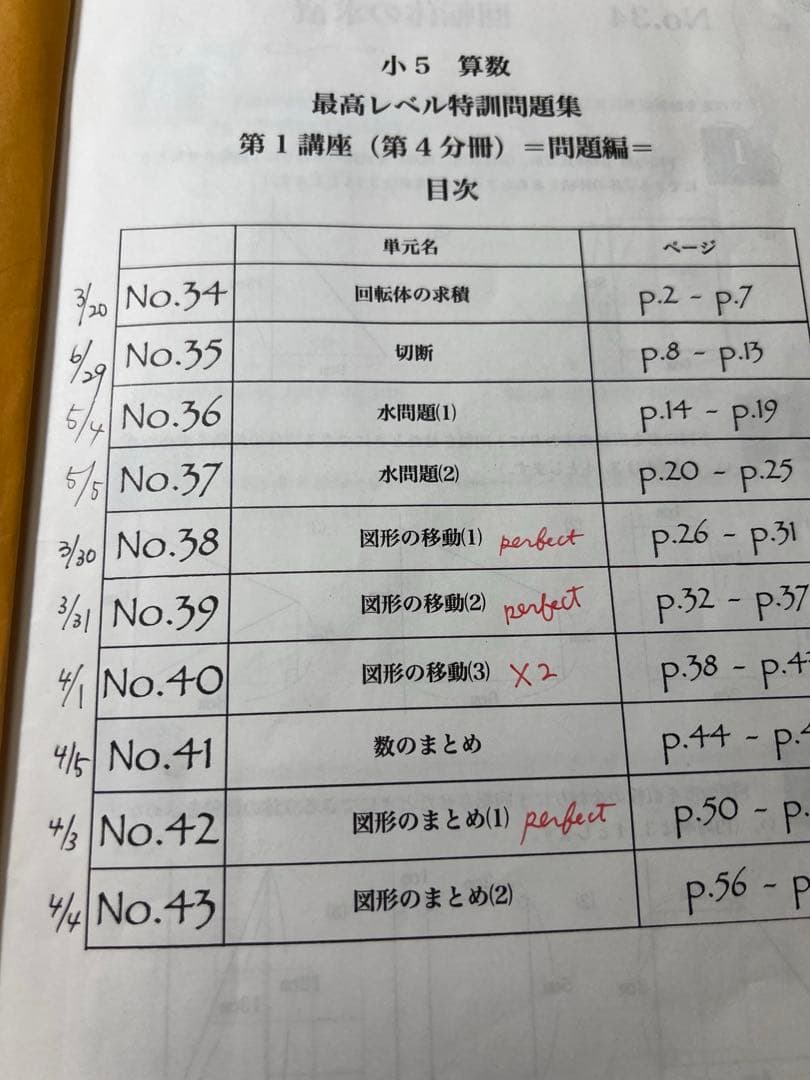 小5 算数
最高レベル特訓問題集
第1講座(第4分冊)=問題編=
目次
単元名 ページ
3/20 No.34 回転体の求積 p.2 - p.7
6/29 No.35 切断 p.8 - p.13
5/4 No.36 水問題(1) p.14 - p.19
5/5 No.37 水問題(2) p.20 - p.25
3/30 No.38 図形の移動(1) perfect p.26 - p.31
3/31 No.39 図形の移動(2) perfect p.32 - p.37
4/1 No.40 図形の移動(3) ×2 p.38 - p.4
4/5 No.41 数のまとめ p.44 - p.
4/3 No.42 図形のまとめ(1) perfect p.50 - p.
4/4 No.43 図形のまとめ(2) p.56 - p